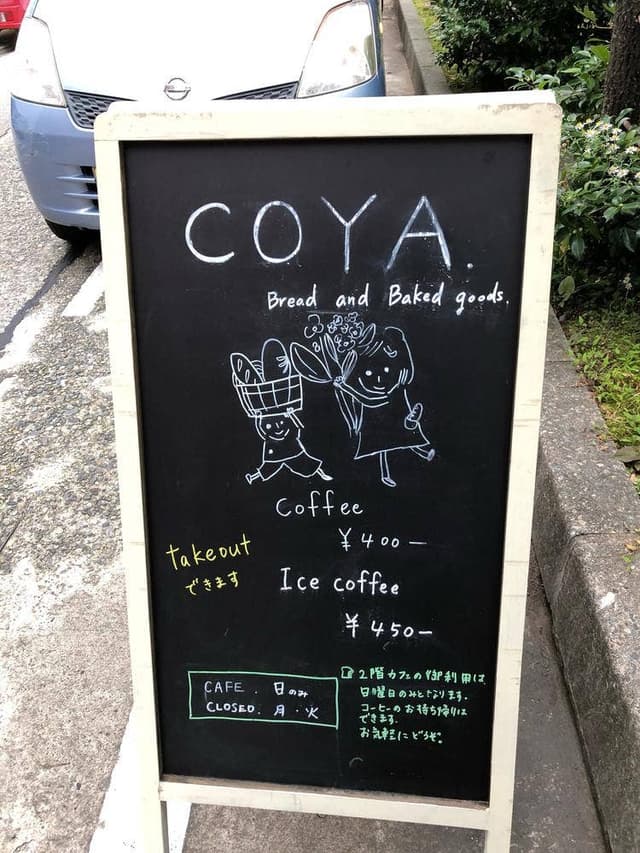 COYA.
Bread and Baked goods.
Coffee
¥400—
takeout
できます
Ice coffee
¥450—
CAFE. 日のみ
CLOSED. 月・火
☞2階カフェの御利用は
日曜日のみとなります。
コーヒーのお持ち帰りは
できます。
お気軽にどうぞ。